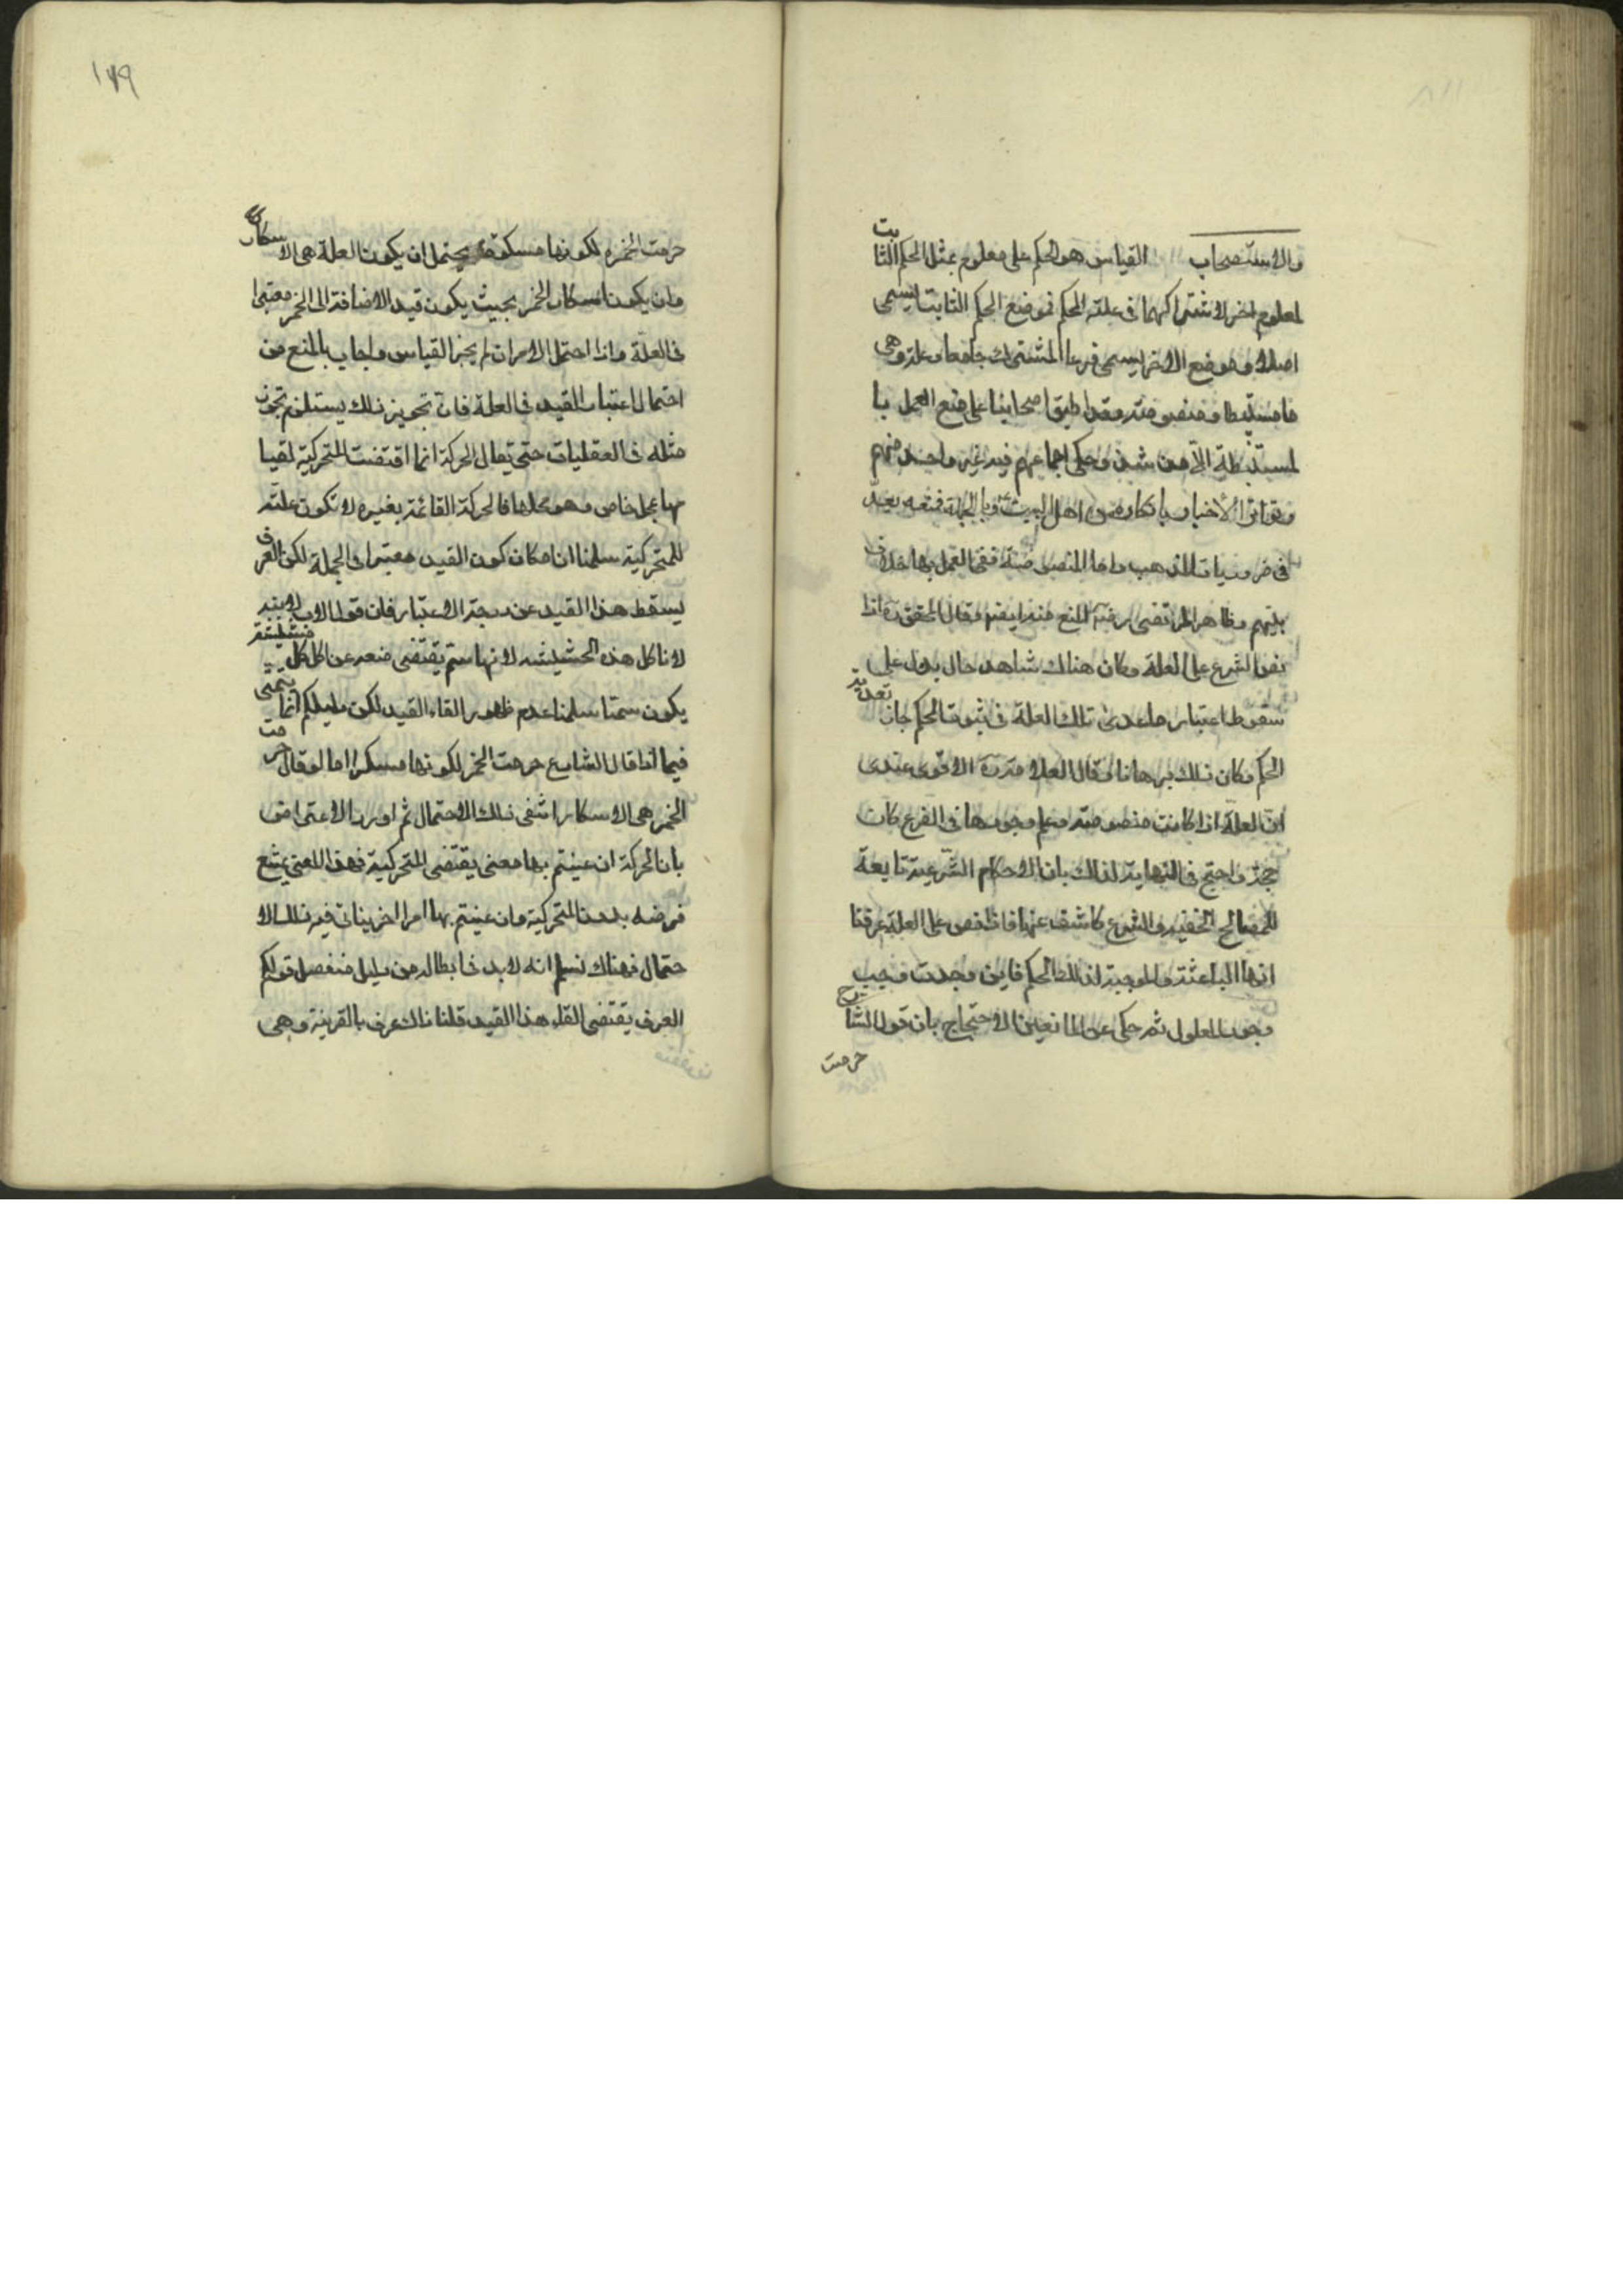 والاستصحاب القياس هو الحكم على معلوم بمثل الحكم الثابت
لمعلوم اخر لاشتراكهما فى علة الحكم فموضع الحكم الثابت يسمى
اصلا وموضع الاخر يسمى فرعا المشترك جامعا وعلة وهى
اما مستنبطة او منصوصة وقد اطبق اصحابنا على منع العمل با
لمستنبطة الا من شذ وحكى اجماعهم فيه غير واحد منهم
وتواتر الاخبار بانكاره عن اهل البيت ع وبالجملة فمنعه يعد
فى ضروريات المذهب واما المنصوصة ففى العمل بها خلاف
بينهم وظاهر المرتضى رضه المنع منه ايضا وقال المحقق ره اذا
نص الشرع على العلة وكان هناك شاهد حال يدل على
سقوط اعتبار ما عدى تلك العلة فى ثبوت الحكم جاز تعدية
الحكم وكان ذلك برهانا وقال العلامة ره الاقوى عندى
ان العلة اذا كانت منصوصة وعلم وجودها فى الفرع كان
حجة واحتج فى النهاية لذلك بان الاحكام الشرعية تابعة
للمصالح الخفية والشرع كاشف عنها فاذا نص على العلة عرفنا
انها الباعثة والموجبة لذلك الحكم فاين وجدت وجب
وجود المعلول ثم حكى عن المانعين الاحتجاج بان قول الشارع
حرمت
١٧٩
حرمت الخمر لكونها مسكرة يحتمل ان يكون العلة هى الاسكار
وان يكون اسكار الخمر بحيث يكون قيد الاضافة الى الخمر معتبرا
فى العلة واذا احتمل الامران لم يجز القياس واجاب بالمنع من
احتمال اعتبار القيد فى العلة فان تجويز ذلك يستلزم تجويز
مثله فى العقليات حتى يقال الحركة انما اقتضت المتحركية لقيا
مها بمحل خاص وهو محلها فالحركة القائمة بغيره لا تكون علة
للمتحركية سلمنا امكان كون القيد معتبرا فى الجملة لكن العرف
يسقط هذا القيد عن درجة الاعتبار فان قول الاب لابنه
لا تاكل هذه الحشيشه لانها سم يقتضى منعه عن اكل كل حشيشة
يكون سمتا سلمنا عدم ظهور الغاء القيد لكن دليلكم انما يتمشى
فيما اذا قال الشارع حرمت الخمر لكونها مسكرا اما لو قال حرمت
الخمر هى الاسكار انتفى ذلك الاحتمال ثم اورد الاعتراض
بان الحركة ان عنيتم بها معنى يقتضى المتحركية فهذا المعنى يمتنع
فرضه بدون المتحركية وان عنيتم بها امرا اخر يتاتى فيه ذلك الا
حتمال فهناك نسلم انه لابد فى ابطاله من دليل منفصل قولكم
العرف يقتضى الغاء هذا القيد قلنا ذلك عرف بالقرينة وهى